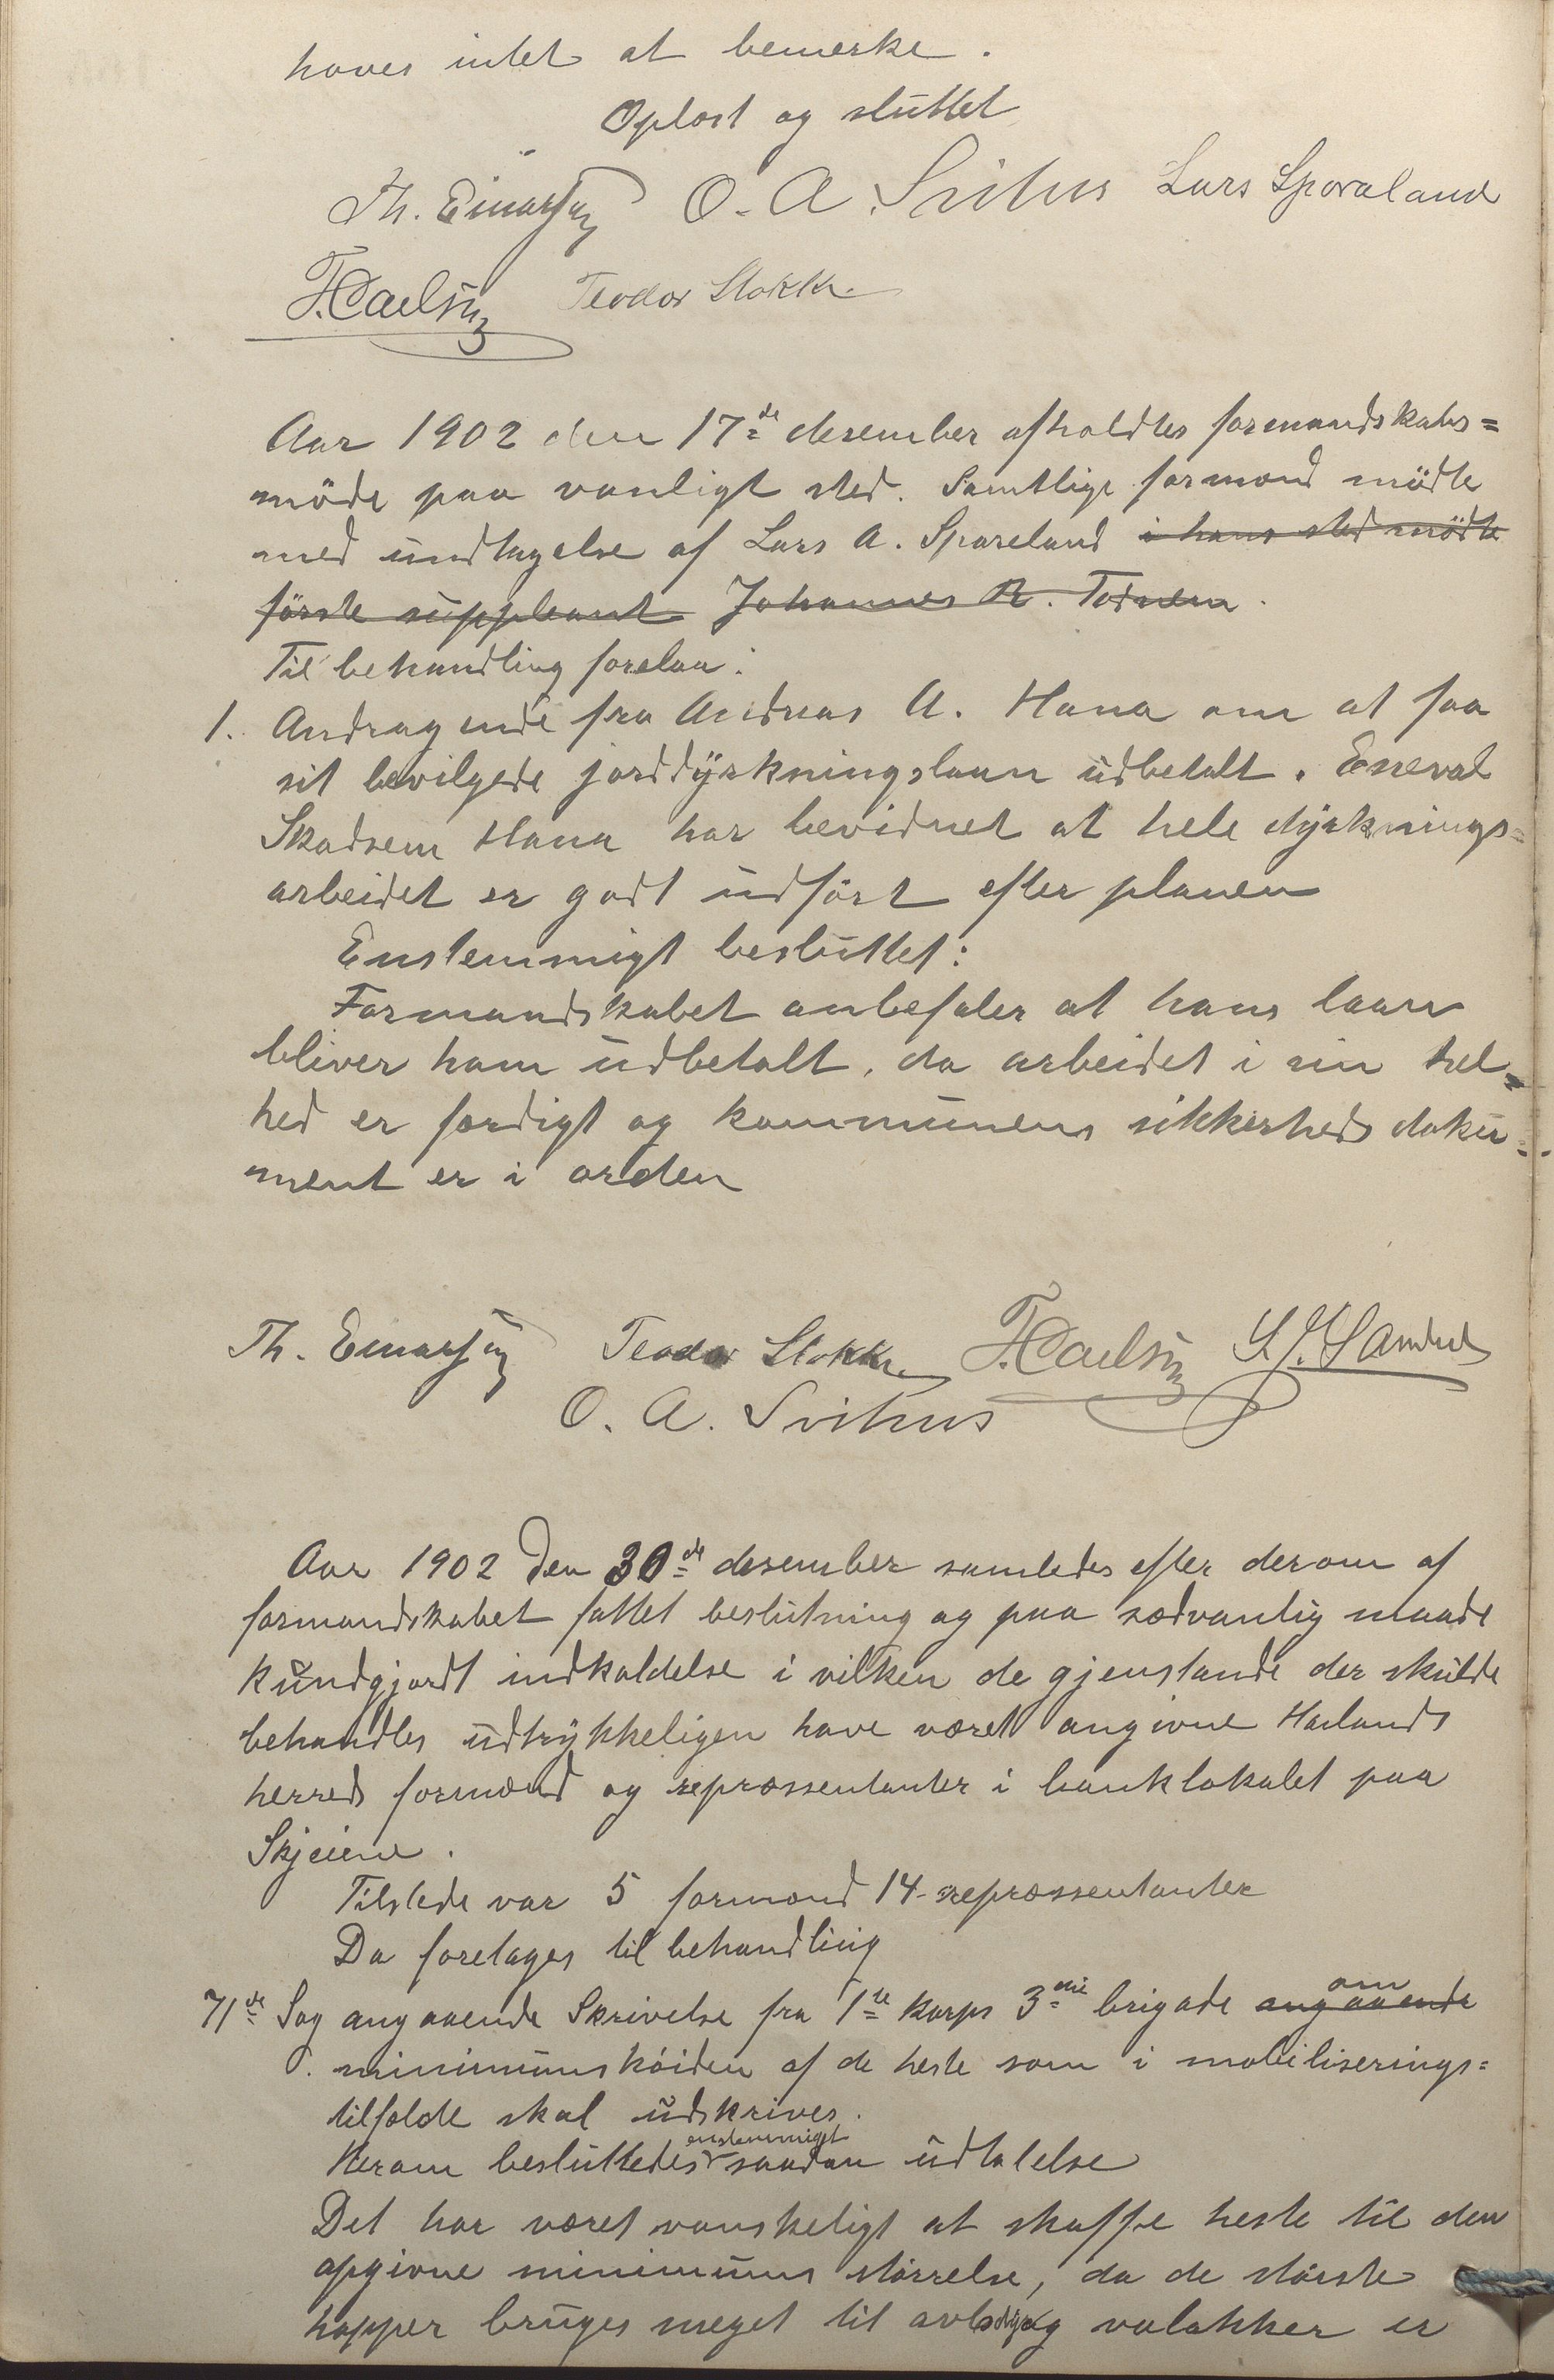 haves intet at bemerke.
Oplæst og sluttet
Th. Einarsen O. A. Svihus Lars Sporaland
T. Carlsen Teodor Stokka
Aar 1902 den 17de desember afholdtes formandskabs=
möde paa vanligt sted. Samtlige formænd mödte
med undtagelse af Lars A. Sporeland i hans sted mödte
förste suppleant Johannes R. Todnem.
Til behandling forelaa:
1. Andragende fra Andreas A. Hana om at faa
sit bevilgede jorddyrkningslaan udbetalt. Enevald
Skadsem Hana har bevidnet at hele dyrknings=
arbeidet er godt udfört efter planen
Enstemmigt besluttet:
Formandskabet anbefaler at hans laan
bliver ham udbetalt, da arbeidet i sin hel=
hed er færdigt og kommunens sikkerheds doku=
ment er i orden
Th. Einarsen Teodor Stokka T. Carlsen
O. A. Svihus
Aar 1902 den 30de desember samledes efter derom af
formandskabet fattet beslutning og paa sædvanlig maade
kundgjordt indkaldelse i vilken de gjenstande der skulde
behandles udtrykkeligen have været angivne Hølands
herreds formænd og repræssentanter i banklokalet paa
Skjeiene.
Tilstede var 5 formænd 14 repræssentanter
Da foretages til behandling
71de Sag angaaende Skrivelse fra 1ste korps 3die brigade angaaende om
minimumshöiden af de heste som i mobiliserings=
tilfælde skal udskrives.
Herom besluttedes enstemmigt saadan udtalelse
Det har været vanskeligt at skaffe heste til den
opgivne minimums störrelse, da de störste
hopper bruges meget til avlsdyr og valakker er